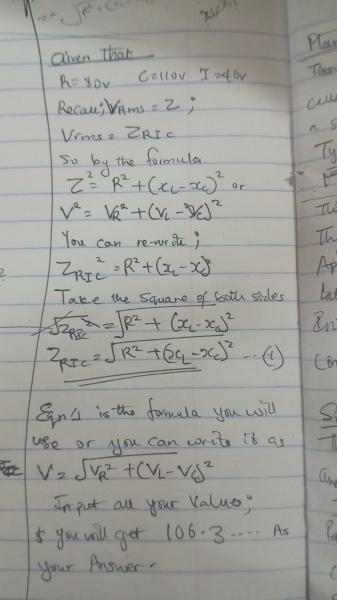 Given that
R = 80v C = 110v I = 40v
Recall; VRms = Z ;
Vrms = ZRIC
So by the formula
Z² = R² + (xL - xc)² or
V² = VR² + (VL - Vc)²
You can re-write ;
ZRIC² = R² + (xL - xc)²
Take the Square of both sides
√ZRIC² = √R² + (xL - xc)²
ZRIC = √R² + (xL - xc)² --- (i)
Eqn 1 is the formula you will
use or you can write it as
V = √VR² + (VL - Vc)²
Input all your Values;
& you will get 106.3 .... As
your Answer.
Plan
Ty
Th